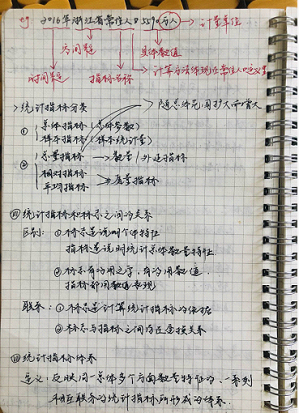 eg 2016年浙江省常住人口5590万人 → 计量单位
空间范围 具体数值
时间界定 指标名称 计算方法体现在常住人口定义里
> 统计指标分类
随总体范围扩大而增大
① 总体指标（总体参数）
样本指标（样本统计量）
② 总量指标 → 数量/外延指标
相对指标
平均指标 → 质量指标
统计指标和标志之间的关系
区别：①标志是说明个体特征
指标是说明统计总体数量特征
②标志有的用文字，有的用数值，
指标都用数值表现
联系：①标志是计算统计指标的依据
②标志与指标之间存在变换关系
统计指标体系
定义：反映同一总体多个方面数量特征的、一系列
相互联系的统计指标所形成的体系。